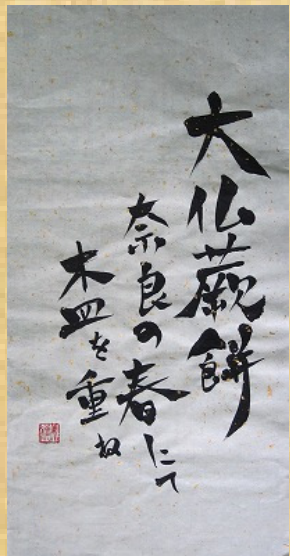 大仏蕨餅
奈良の春にて
木皿を重ね